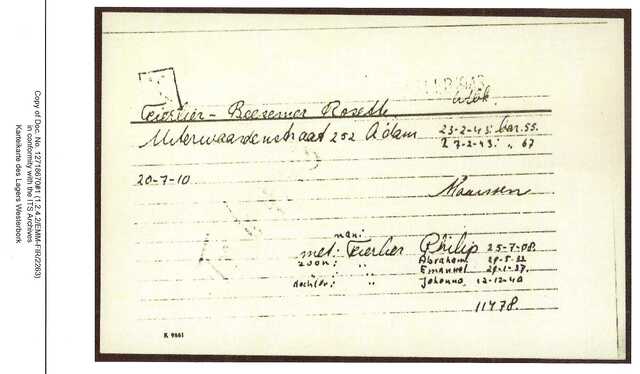 Copy of Doc. No. 12718670#1 (1.2.4.2/ENIM-FRI/2263)
in conformity with the ITS Archives
Karteikarte des Lagers Westerbork
Teierlier - Boesemer Rosette
Uiterwaardenstraat 252 A'dam 23-2-43: bar. 55.
27-2-43: " 67
20-7-10
Maarssen
man:
met: Teierlier Philip 25-7-08.
zoon: " Abraham
" " Emanuel
dochter: " Johanna 12-12-40
11478.
K 9661